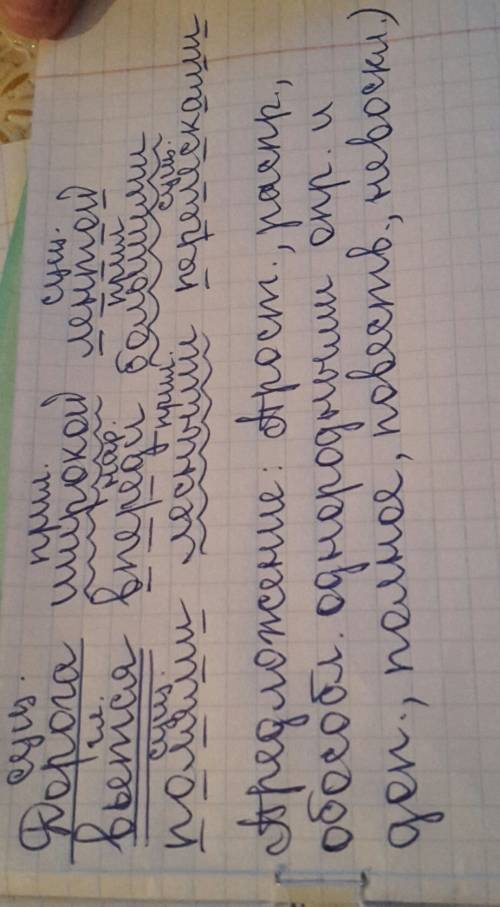 сущ. прил. сущ.
Дорога широкой лентой
гл. нар. прил
вьется впереди большими
сущ. прил. сущ.
полями лесными перелесками
Предложение: Прост., распр.,
обособл. однородными опр. и
доп., полное, повеств., невоскл.)